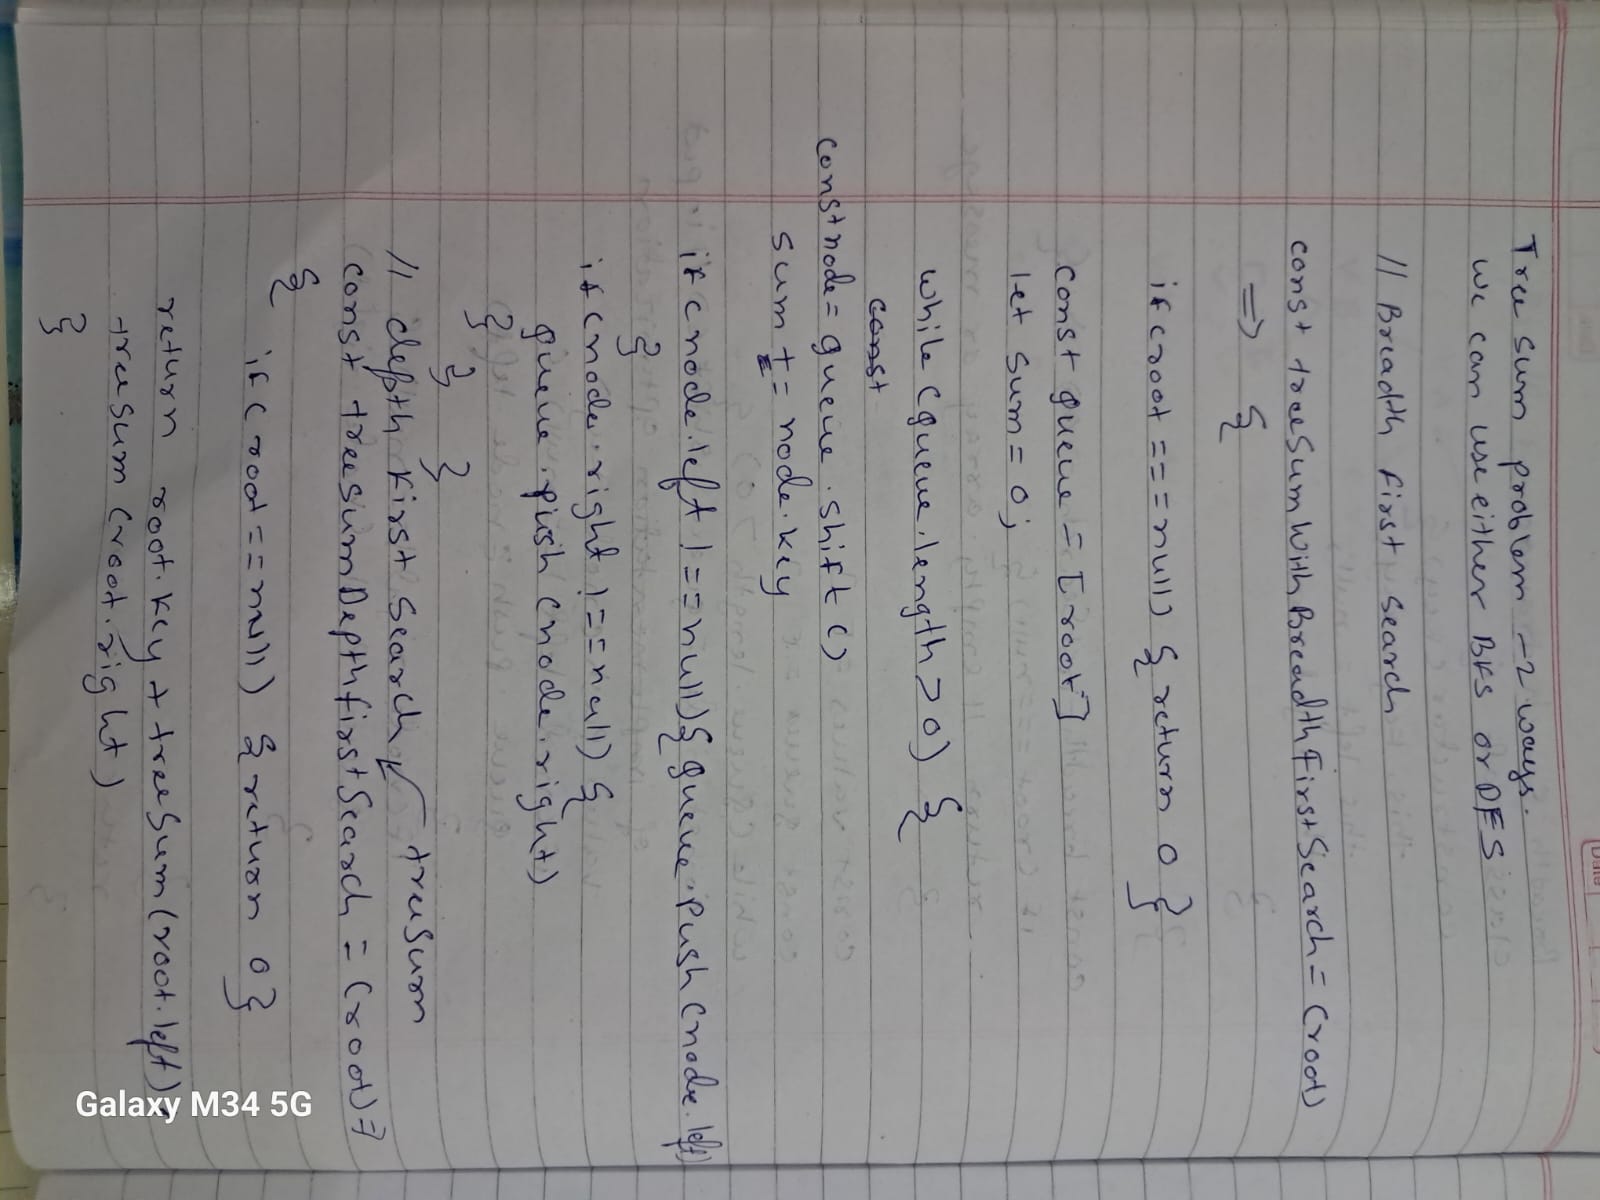 Date
Tree sum problem - 2 ways.
We can use either BFS or DFS
// Breadth first search
const treeSumWithBreadthFirstSearch = (root)
=> {
if (root === null) { return 0 }
const queue = [root]
let sum = 0;
while (queue.length > 0) {
const
const node = queue.shift()
sum += node.key
if (node.left !== null) { queue.push(node.left)
}
if (node.right !== null) {
queue.push(node.right)
}
} }
// depth first search treeSum
const treesumDepthfirstSearch = (root) =>
{
if (root == null) { return 0 }
return root.key + treeSum(root.left) +
treeSum(root.right)
}
Galaxy M34 5G